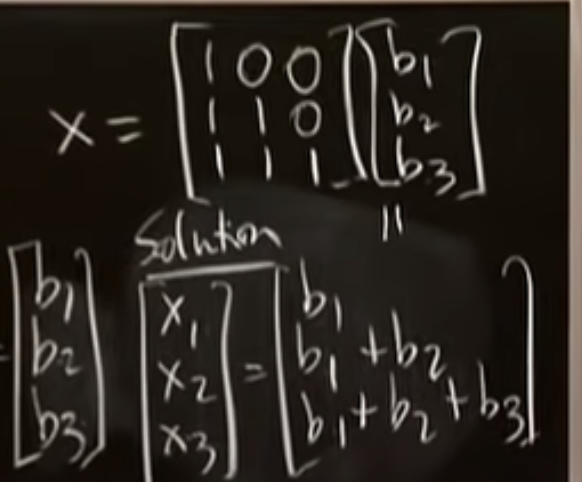 x = [1 0 0; 1 1 0; 1 1 1] [b1; b2; b3]
=
Solution
= [b1; b2; b3] [x1; x2; x3] = [b1; b1 + b2; b1 + b2 + b3]